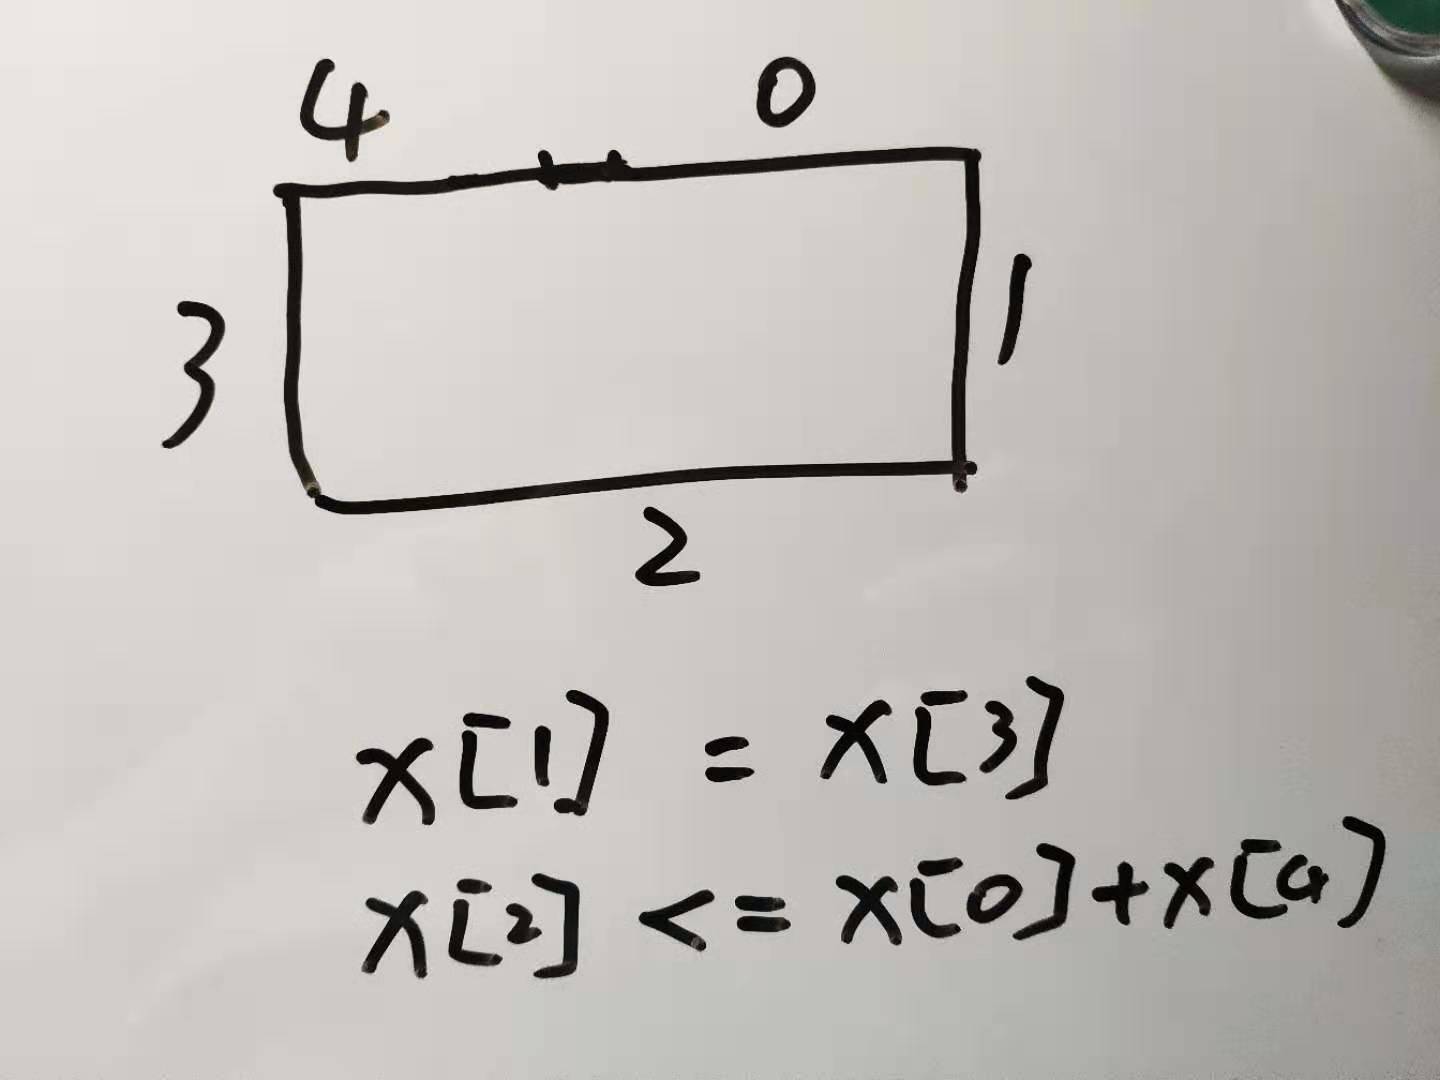 4 0
3 1
2
x[1] = x[3]
x[2] <= x[0]+x[4]